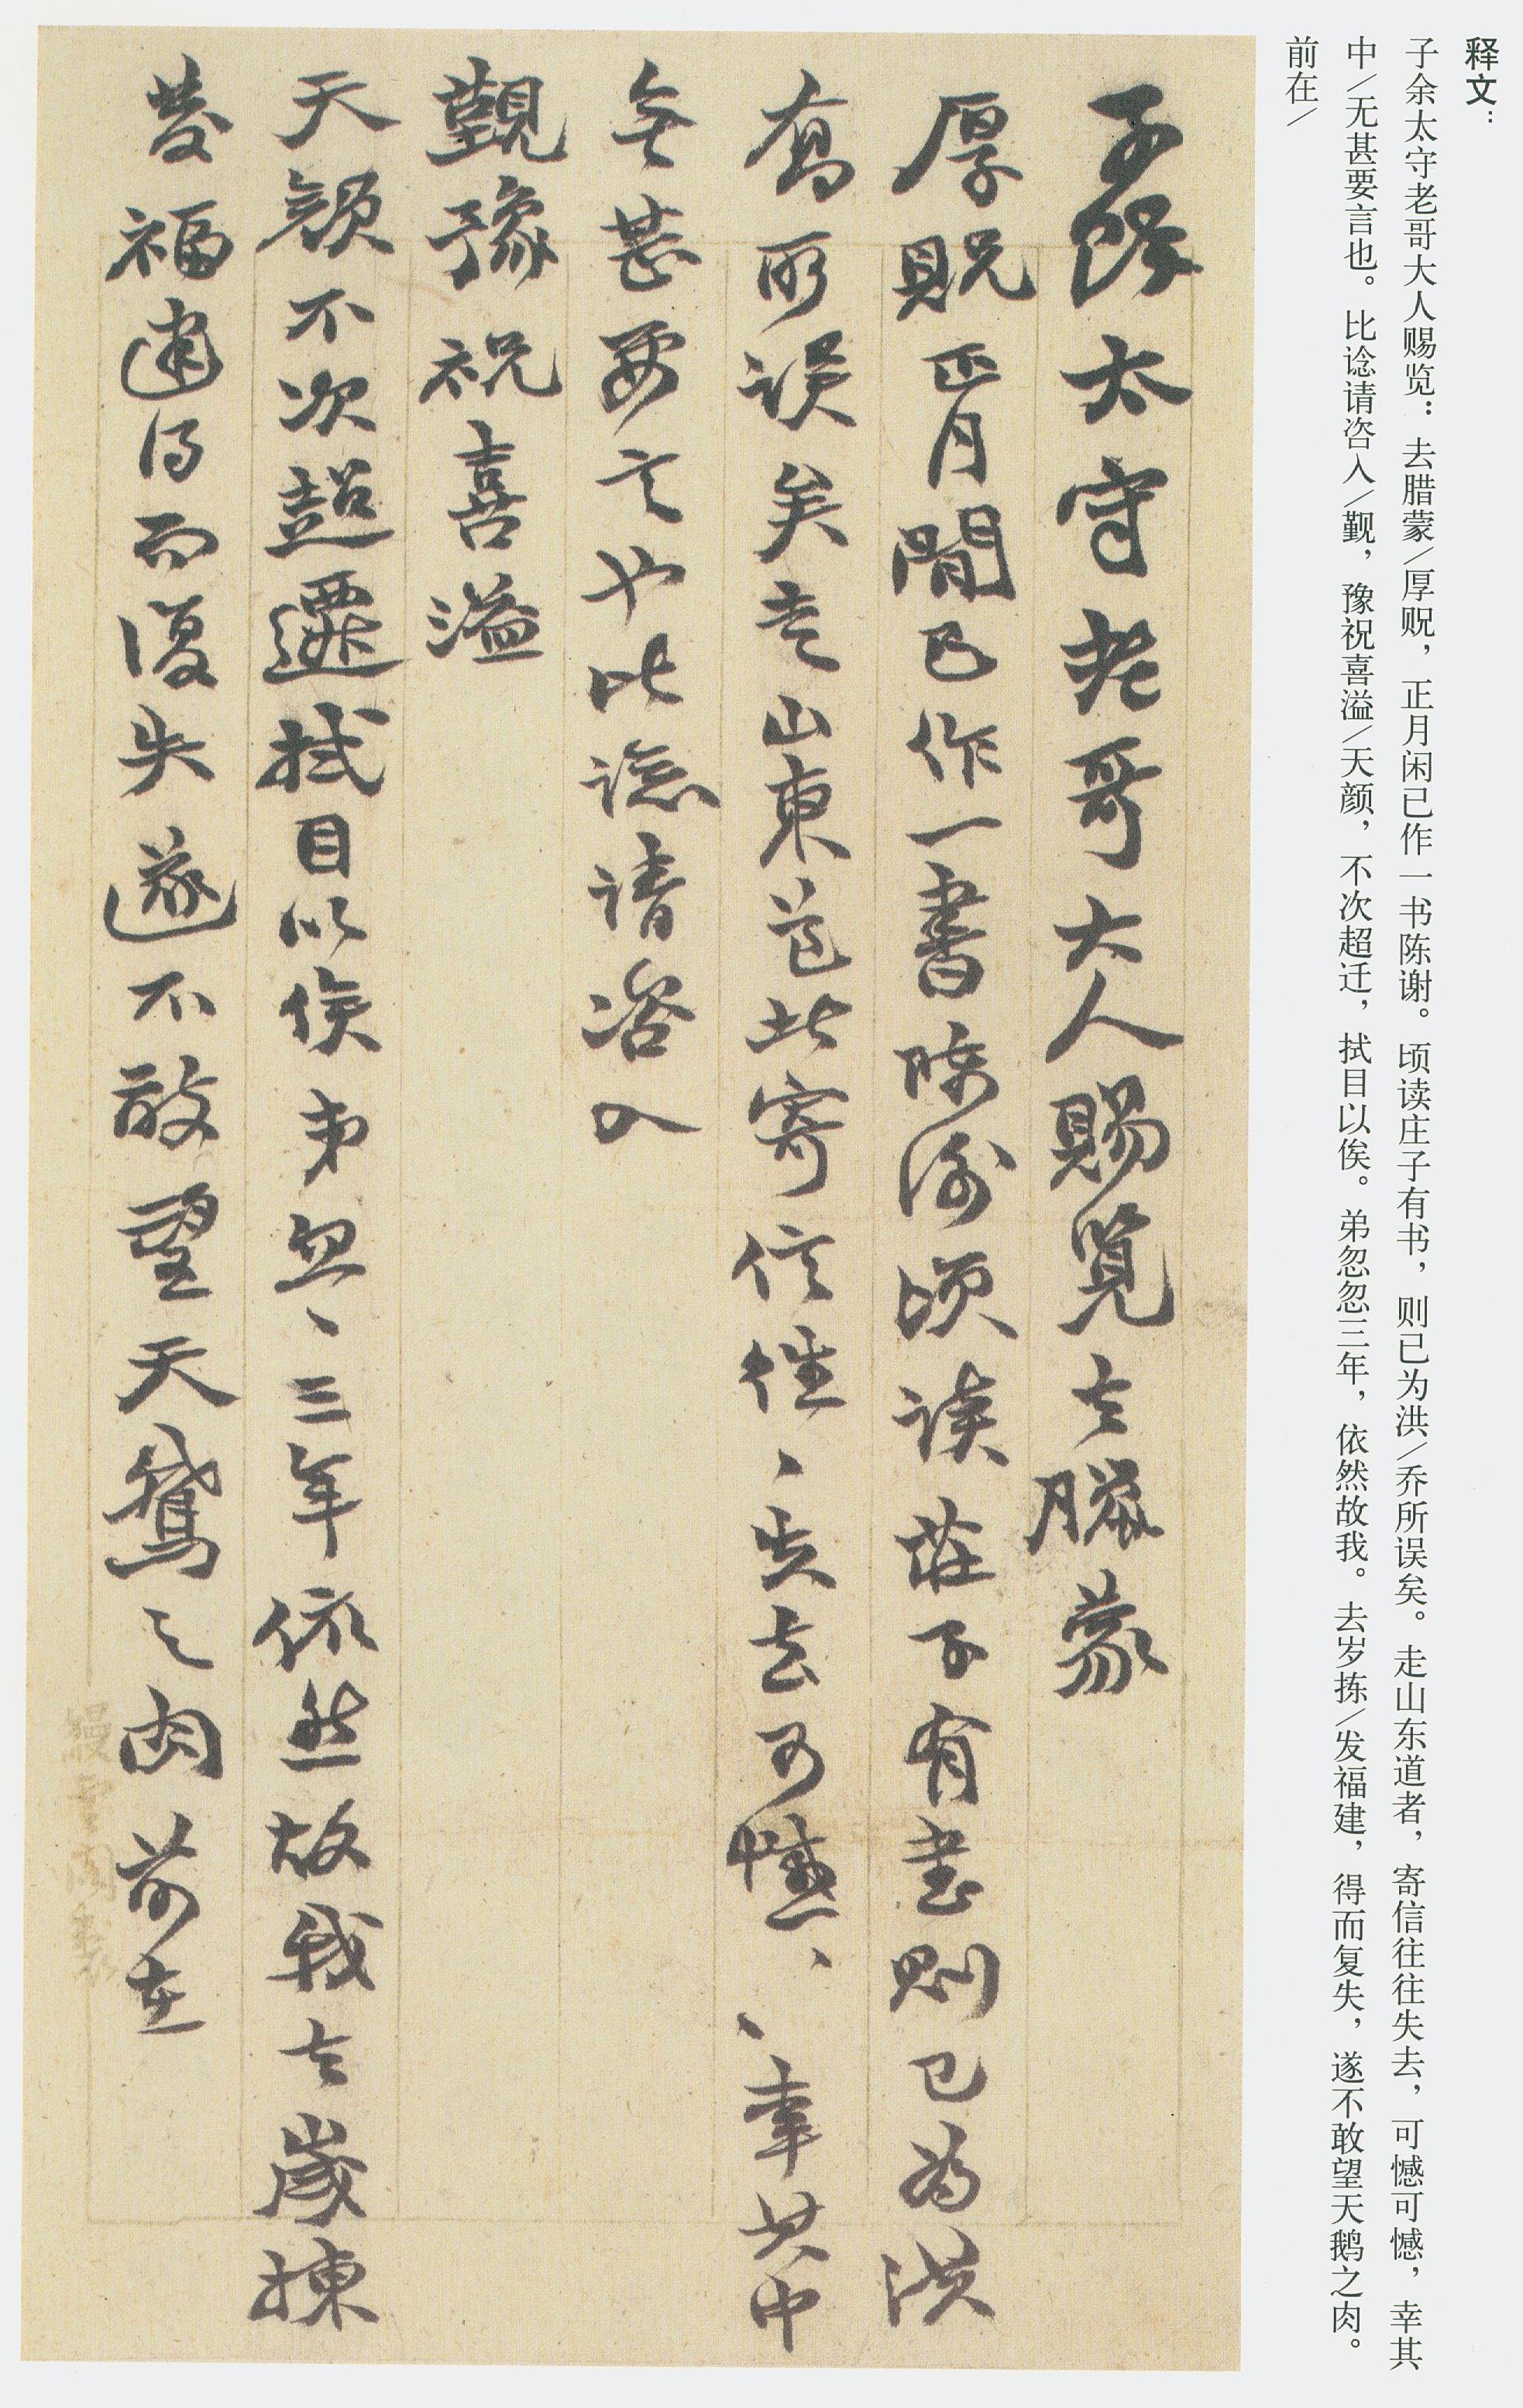 释文：
子余太守老哥大人赐览：去腊蒙/厚贶，正月闲已作一书陈谢。顷读庄子有书，则已为洪/乔所误矣。走山东道者，寄信往往失去，可憾可憾，幸其
中/无甚要言也。比谂请咨入/觐，豫祝喜溢/天颜，不次超迁，拭目以俟。弟忽忽三年，依然故我。去岁拣/发福建，得而复失，遂不敢望天鹅之肉。
前在/
子餘太守老哥大人賜覽去臘蒙
厚貺正月閒已作一書陳謝頃读莊子有書則已為洪
喬所误矣走山東道此寄信往、失去可憾、、幸其中
無甚要言也比諗请咨入
覲豫祝喜溢
天顏不次超遷拭目以俟弟忽、三年依然故我去歲揀
發福建得而復失遂不敢望天鵞之肉前在